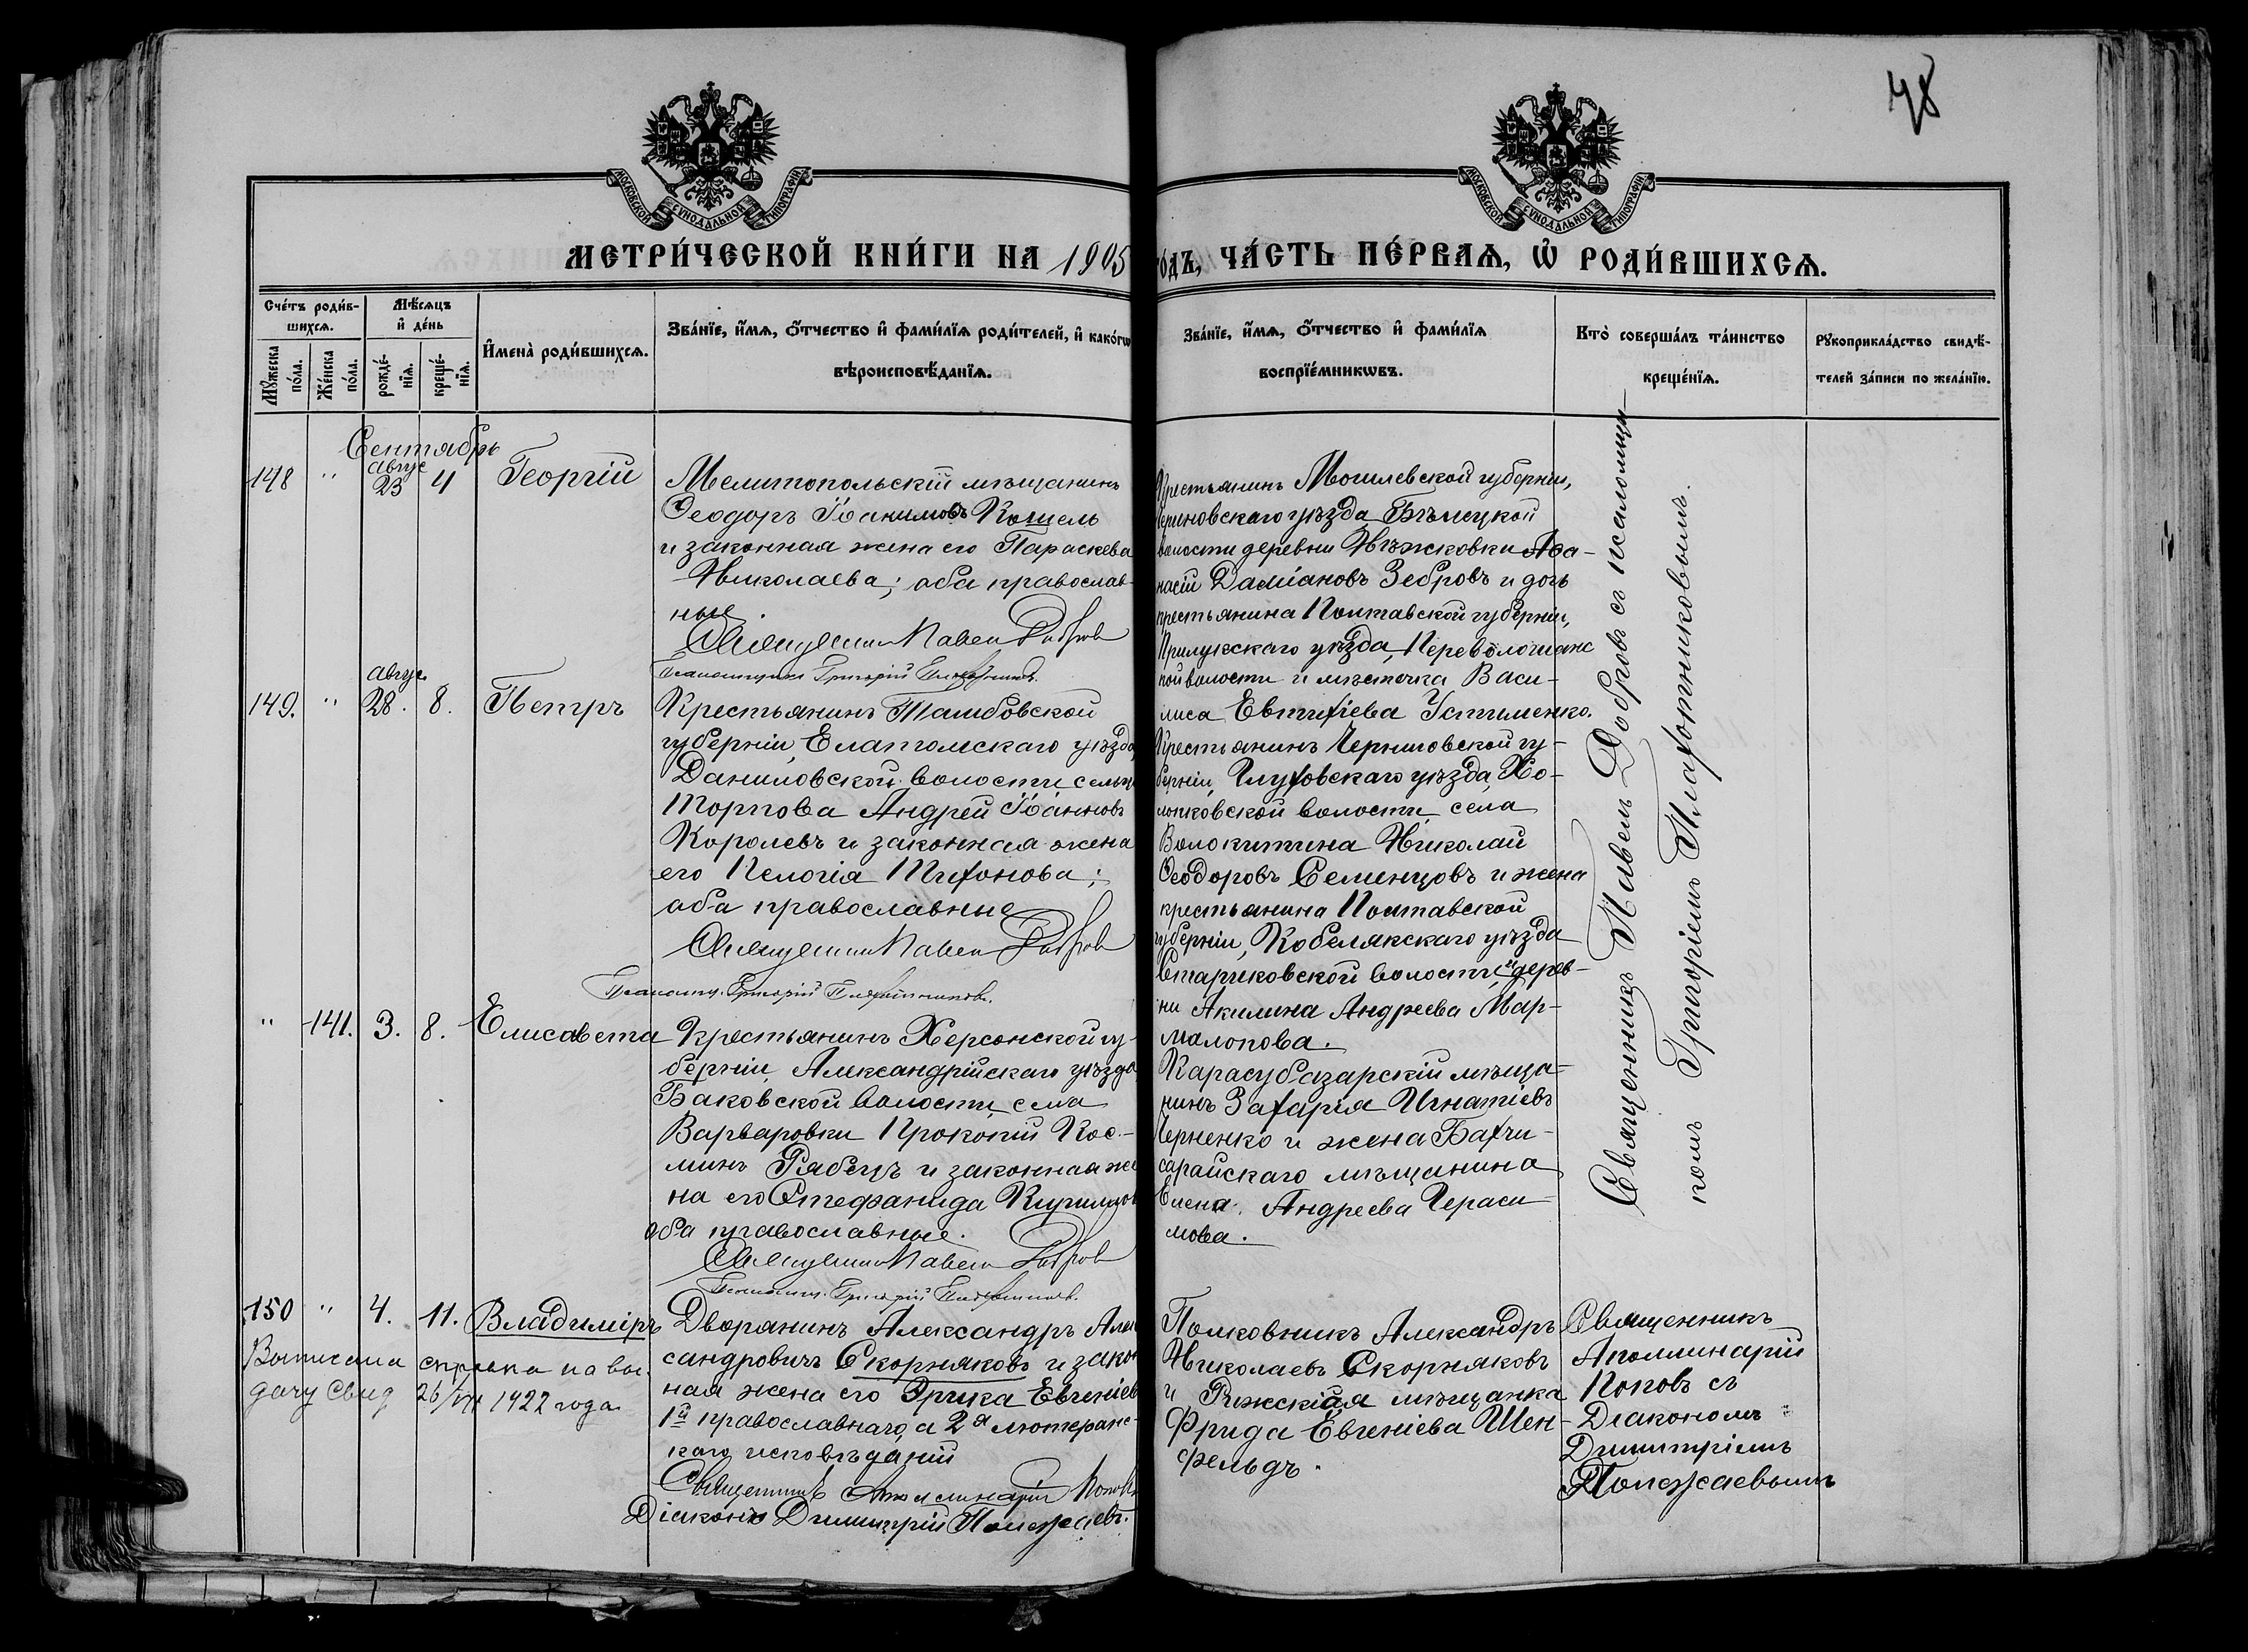 48
МОСКОВСКОЙ СѴНОДАЛЬНОЙ ТИПОГРАФІИ
МОСКОВСКОЙ СѴНОДАЛЬНОЙ ТИПОГРАФІИ
МЕТРИ́ЧЕСКОЙ КНИ́ГИ НА 1905
ГО́ДЪ, ЧА́СТЬ ПЕ́РВАѦ, Ѽ РОДИ́ВШИХСѦ.
Сче́тъ роди́в-
шихсѧ.
Мꙋ́жеска по́ла.
Же́нска по́ла.
Мѣ́сѧцъ
и҆ де́нь
рожде́-
нїѧ.
креще́-
нїѧ.
И҆мена̀ роди́вшихсѧ.
Зва́нїе, и҆́мѧ, ѻ҆́тчество и҆ фами́лїѧ роди́телей, и҆ како́гѡ
вѣроисповѣ́данїѧ.
Зва́нїе, и҆́мѧ, ѻ҆́тчество и҆ фами́лїѧ
воспрїе́мникѡвъ.
Кто̀ соверша́лъ та́инство
креще́нїѧ.
Рꙋкоприкла́дство свидѣ́-
телей за́писи по жела́нїю.
Сентябрь
148 " авгус 23 4 Георгій
Мелитопольскій мѣщанинъ
Ѳеодоръ Іоакимовъ Кошель
и законная жена его Параскева
Николаева; оба православ-
ные.
Священникъ Павелъ Добровъ
Псаломщикъ Григорій Плахотниковъ.
Крестьянинъ Могилевской губерніи,
уѣзда
волости деревни Аѳа-
насій Даміановъ Зебровъ и дочь
крестьянина Полтавской губерніи,
Прилукскаго уѣзда, Переволочанс
кой волости и мѣстечка Васи-
лиса Евтихіева Устименко.
149. " авгус. 28. 8. Петръ
Крестьянинъ Тамбовской
губерніи, Елатомскаго уѣзда,
Даниловской волости, сельца
Торпова Андрей Іоанновъ
Королевъ и законная жена
его Пелагія Тихонова;
оба православные
Священникъ Павелъ Добровъ
Псаломщ. Григорій Плахотниковъ.
Крестьянинъ Черниговской гу-
берніи, Глуховскаго уѣзда, Хо-
лопковской волости, села
Волокитина Николай
Ѳеодоровъ Семенцовъ и жена
крестьянина Полтавской
губерніи, Кобелякскаго уѣзда
волости, и дерев-
ни Акилина Андреева Мар-
малопова.
" 141. 3. 8. Елисавета
Крестьянинъ Херсонской гу-
берніи, Александрійскаго уѣзда
волости, села
Варваровки Прокопій Кос-
минъ Рябецъ и законная же
на его Стефанида Кирилова
оба православные.
Священникъ Павелъ Добровъ
Псаломщ. Григорій Плахотниковъ.
Карасубазарскій мѣща-
нинъ Захарія Игнатіевъ
Черненко и жена Бахчи-
сарайскаго мѣщанина
Елена Андреева Гераси-
мова.
Священникъ Павелъ Добровъ съ псаломщи-
комъ Григоріемъ Плахотниковымъ.
150 " 4. 11. Владиміръ
Выписана справка на вы-
дачу свид 26/VII 1922 года
Дворянинъ Александръ Алек
сандровичъ Скорняковъ и закон
ная жена его Эрика Евгеніев
1й православнаго, а 2я лютеранс-
каго исповѣданій
Священникъ Аполлинарій Поповъ
Діаконъ Димитрій Полежаевъ.
Полковникъ Александръ
Николаевъ Скорняковъ
и Рижская мѣщанка
Фрида Евгеніева Шен-
фельдъ.
Священникъ
Аполлинарій
Поповъ съ
Діакономъ
Димитріемъ
Полежаевымъ